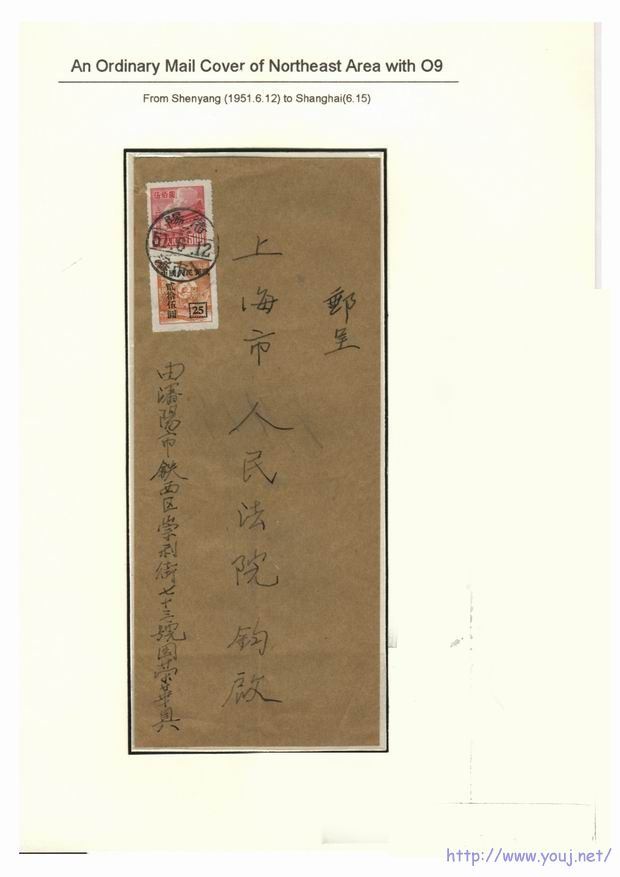 An Ordinary Mail Cover of Northeast Area with O9
From Shenyang (1951.6.12) to Shanghai(6.15)
伍佰圓
500
瀋陽
51.6.12
貳拾伍圓
25
郵呈
上海市人民法院鈞啟
由瀋陽市鉄西区崇剥街七十三號
http://www.youj.net/